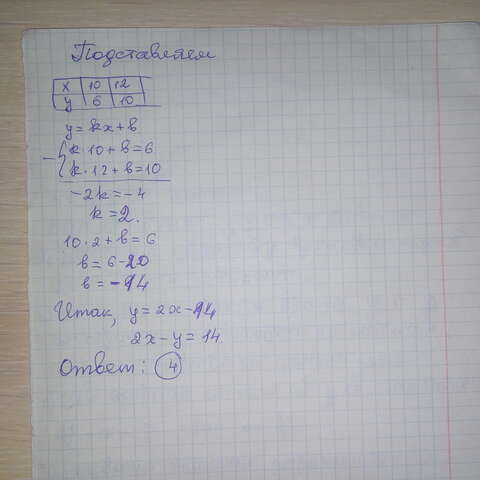 Подставляем
x 10 12
y 6 10
y = kx + b
- { k · 10 + b = 6
k · 12 + b = 10
-2k = -4
k = 2.
10 · 2 + b = 6
b = 6 - 20
b = -14
Итак, y = 2x - 14
2x - y = 14.
Ответ: 4